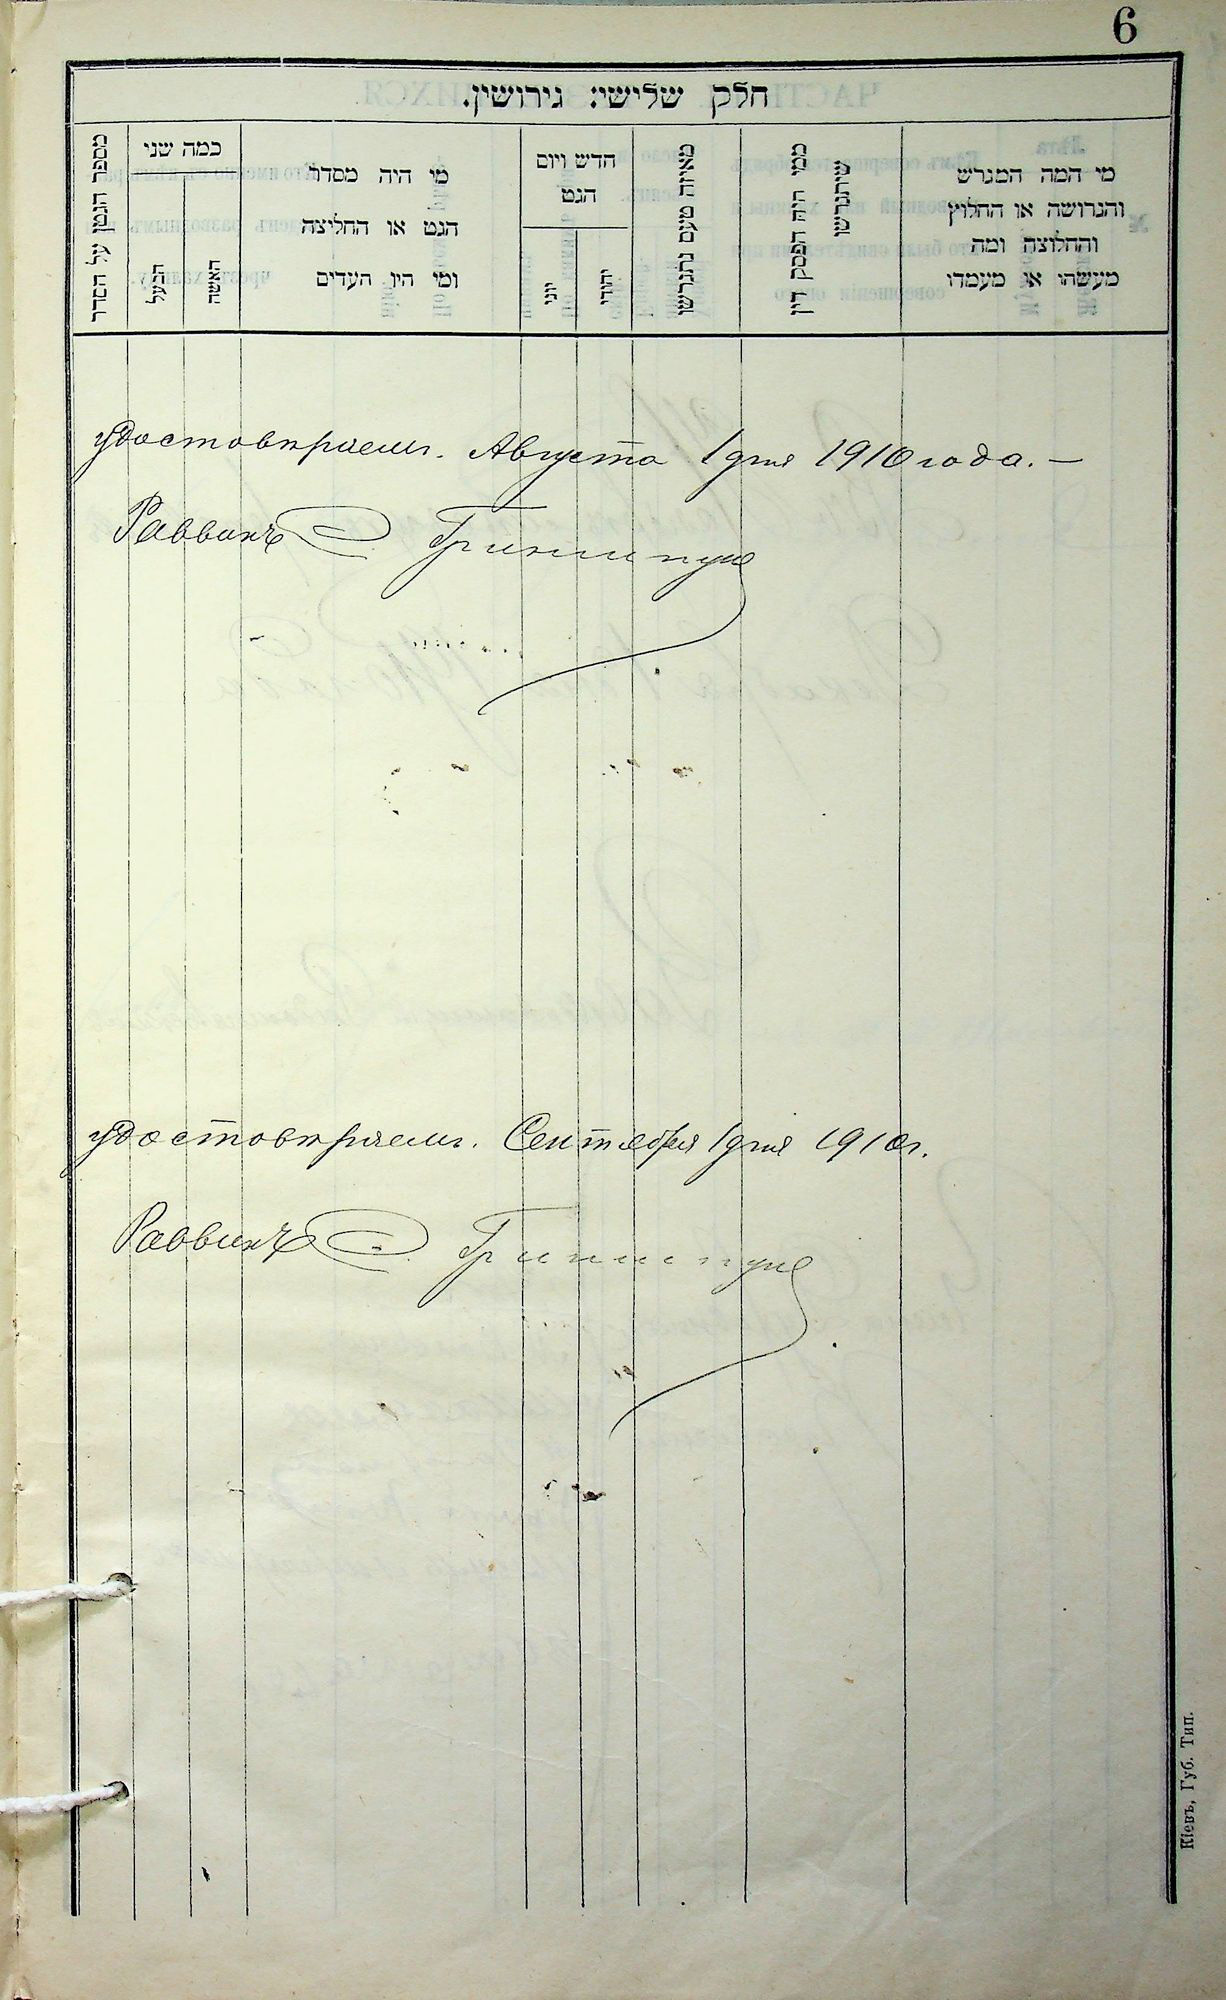 6
חלק שלישי: גירושין.
מי המה המגרש
והגרושה או החלוץ
והחלוצה ומה
מעשהו או מעמדו
ממי היה הפסק דין
שיתגרשו
מאיזה טעם נתגרשו
חדש ויום
הגט
יהודי
יוני
מי היה מסדר
הגט או החליצה
ומי היו העדים
כמה שני
האשה
הבעל
מספר הגטין על הסדר
удостовѣряемъ. Августа 1 дня 1910 года. —
Раввинъ Гриншпунъ
удостовѣряемъ. Сентября 1 дня 1910 г.
Раввинъ Гриншпунъ
Кіевъ, Губ. Тип.